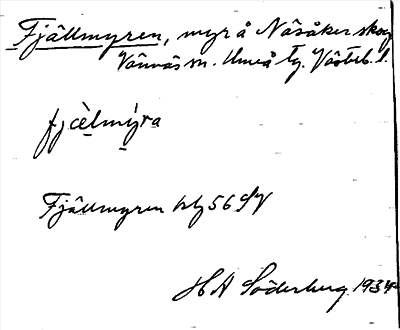 Fjällmyren, myr å Nåsåker skog
Vännäs sn. Umeå tg. Västeb. l.
fjɛ̀lmýra
Fjällmyren kbl 56 SV
H A Söderberg 1934